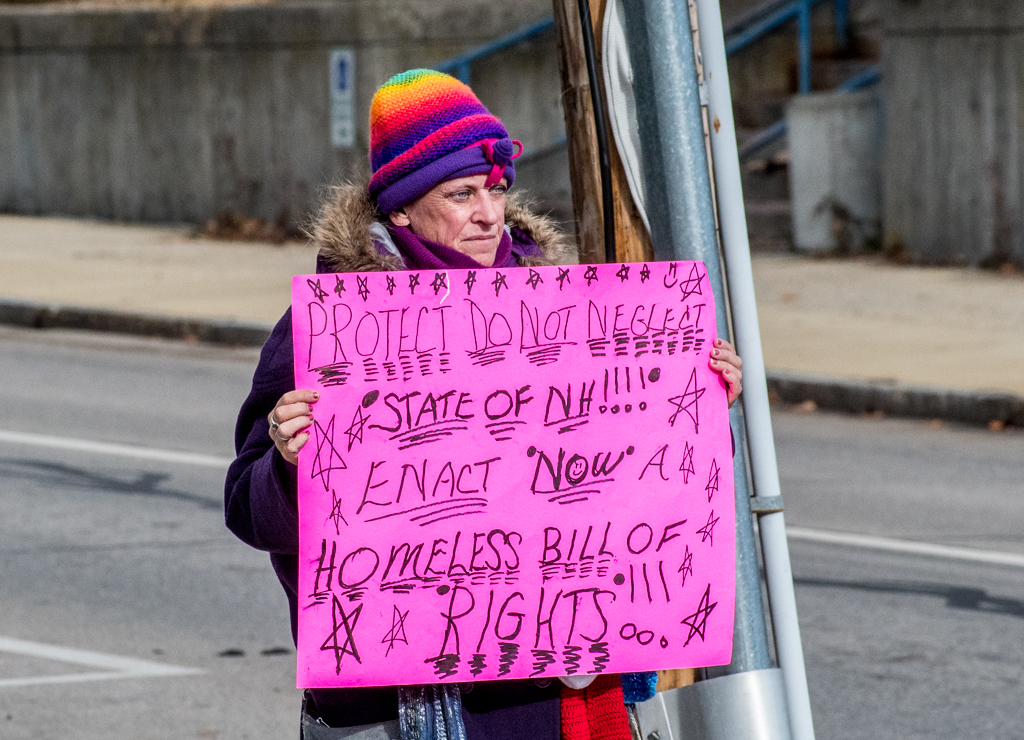 PROTECT DO NOT NEGLECT
STATE OF NH!!!!
ENACT NOW A
HOMELESS BILL OF
RIGHTS!!!